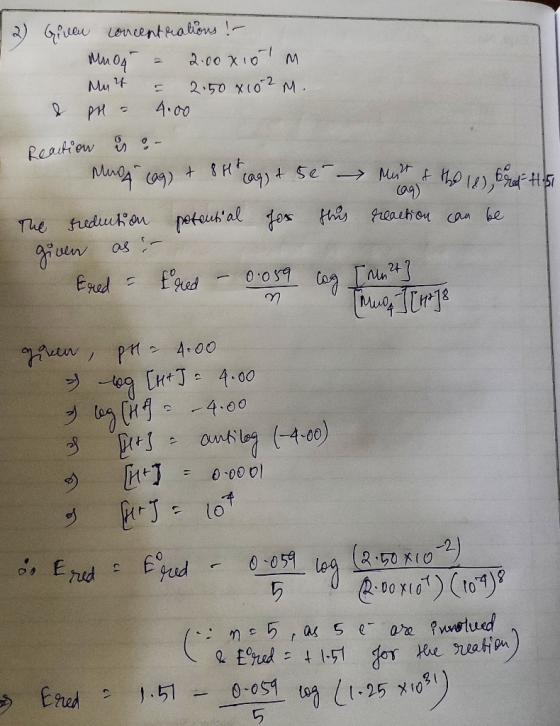 2) Given concentrations :-
MnO4⁻ = 2.00 × 10⁻¹ M
Mn²⁺ = 2.50 × 10⁻² M.
& pH = 4.00
Reaction is :-
MnO4⁻ (aq) + 8H⁺ (aq) + 5e⁻ → Mn²⁺ (aq) + H2O (l), E°red = +1.51
The reduction potential for this reaction can be
given as :-
Ered = E°red - 0.059/n log [Mn²⁺]/[MnO4⁻][H⁺]⁸
given, pH = 4.00
⇒ -log [H⁺] = 4.00
⇒ log [H⁺] = -4.00
⇒ [H⁺] = antilog (-4.00)
⇒ [H⁺] = 0.0001
⇒ [H⁺] = 10⁻⁴
∴ Ered = E°red - 0.059/5 log (2.50×10⁻²)/(2.00×10⁻¹)(10⁻⁴)⁸
(∵ n = 5, as 5 e⁻ are involved
& E°red = +1.51 for the reation)
⇒ Ered = 1.51 - 0.059/5 log (1.25 ×10³¹)